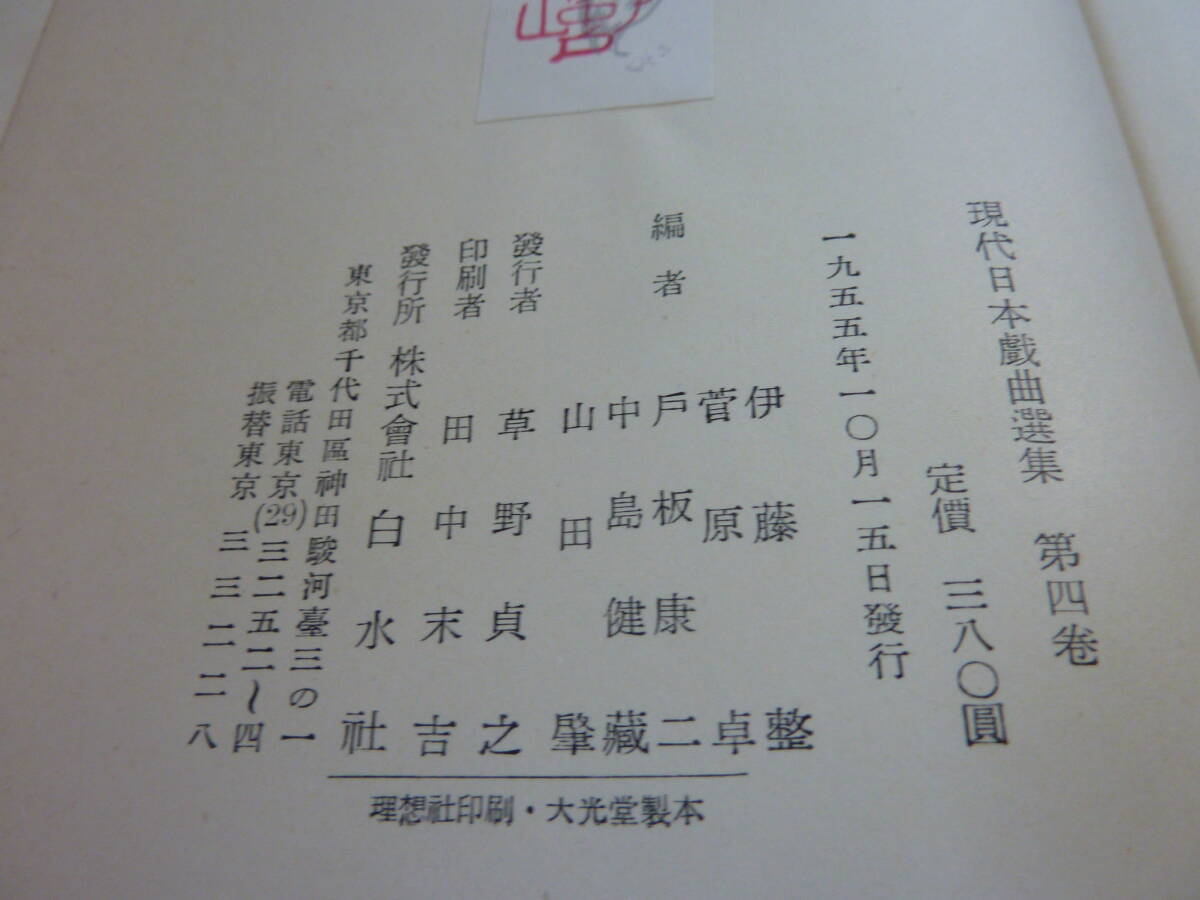 現代日本戲曲選集 第四卷
定價 三八〇圓
一九五五年一〇月一五日發行
編者
伊藤整
菅原卓
戶板康二
中島健藏
山田肇
發行者 草野貞之
印刷者 田中末吉
發行所 株式會社 白水社
東京都千代田區神田駿河臺三の一
電話東京(29)三二五二〜四
振替東京 三三二二八
理想社印刷・大光堂製本